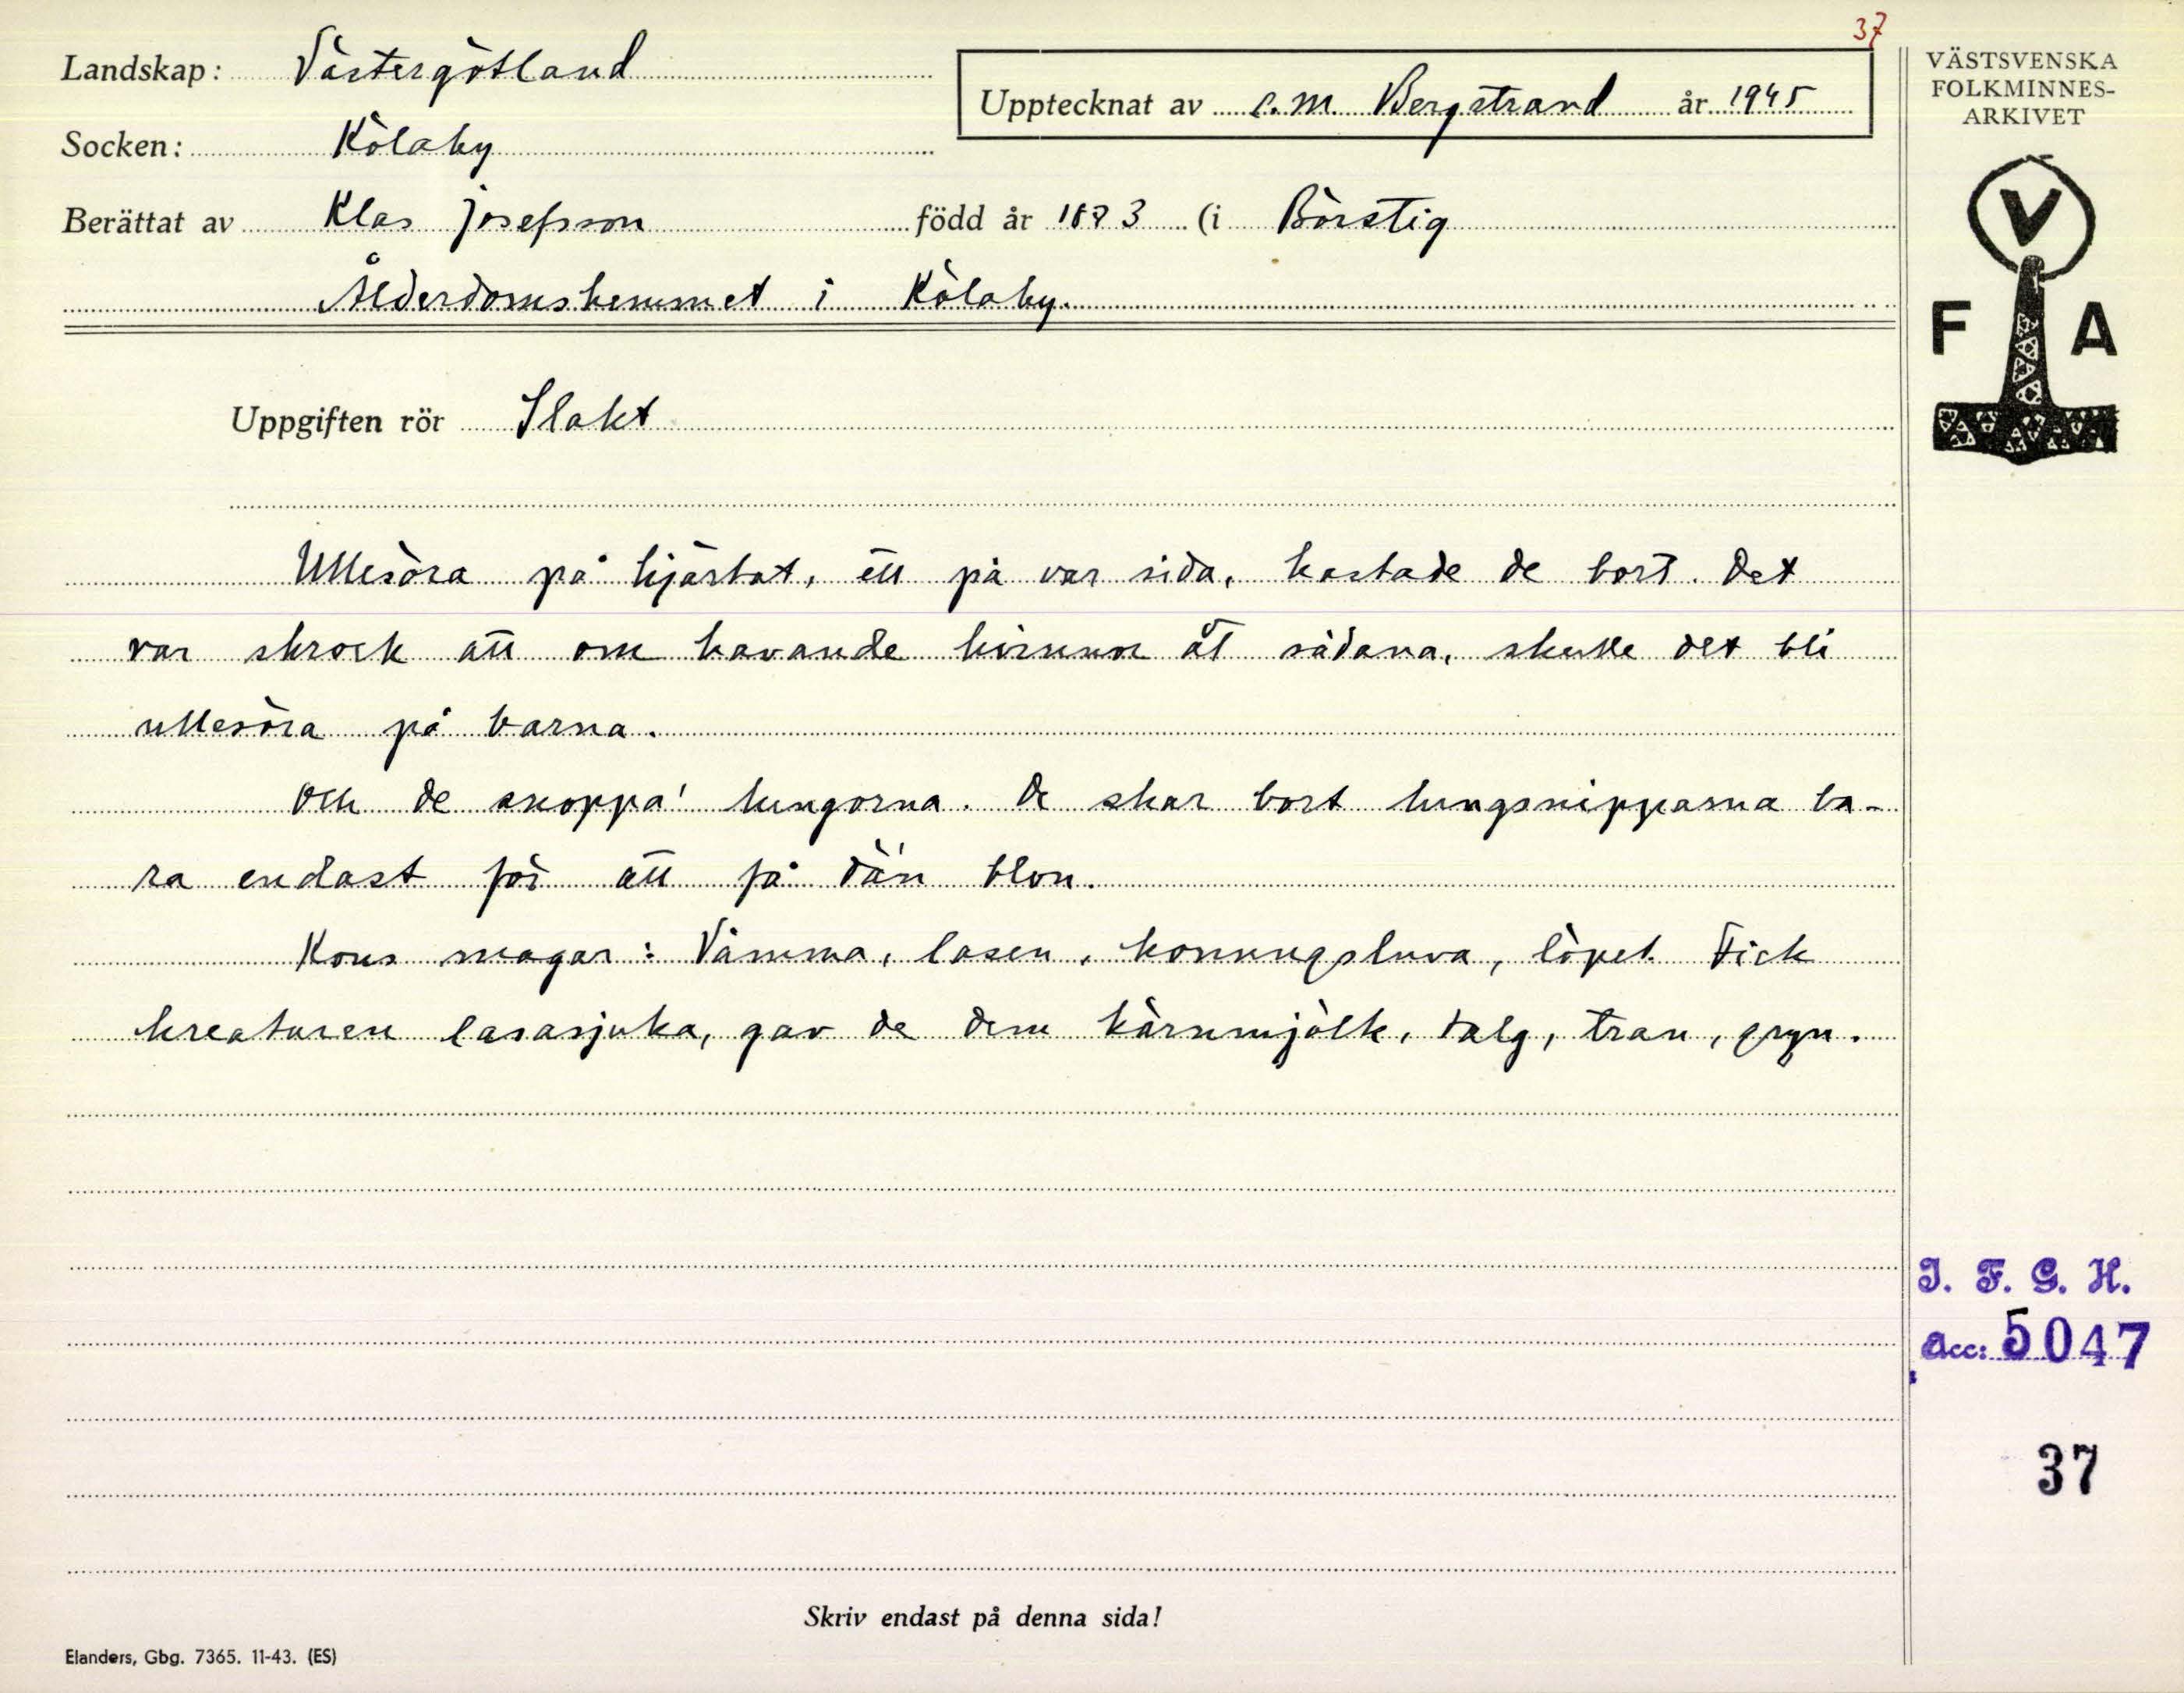 37
Landskap: Västergötland
Upptecknat av C. M. Bergstrand år 1945
VÄSTSVENSKA
FOLKMINNES-
ARKIVET
Socken: Kölaby
Berättat av Klas Josefsson född år 1873 (i Börstig
Ålderdomshemmet i Kölaby.
V
F A
Uppgiften rör Slakt
Ullesöra på hjärtat, ett på var sida, kastade de bort. Det
var skrock att om havande kvinnor åt sådana, skulle det bli
ullesöra på barna.
Och de snoppa' lungorna. De skar bort lungsnipparna ba-
ra endast för att få dän blon.
Kons magar: Våmma, lasen, konungsluva, löpet. Fick
kreaturen lasasjuka, gav de dem kärnmjölk, talg, tran, gryn.
I. F. G. H.
Acc: 5047
37
Skriv endast på denna sida!
Elanders, Gbg. 7365. 11-43. (ES)